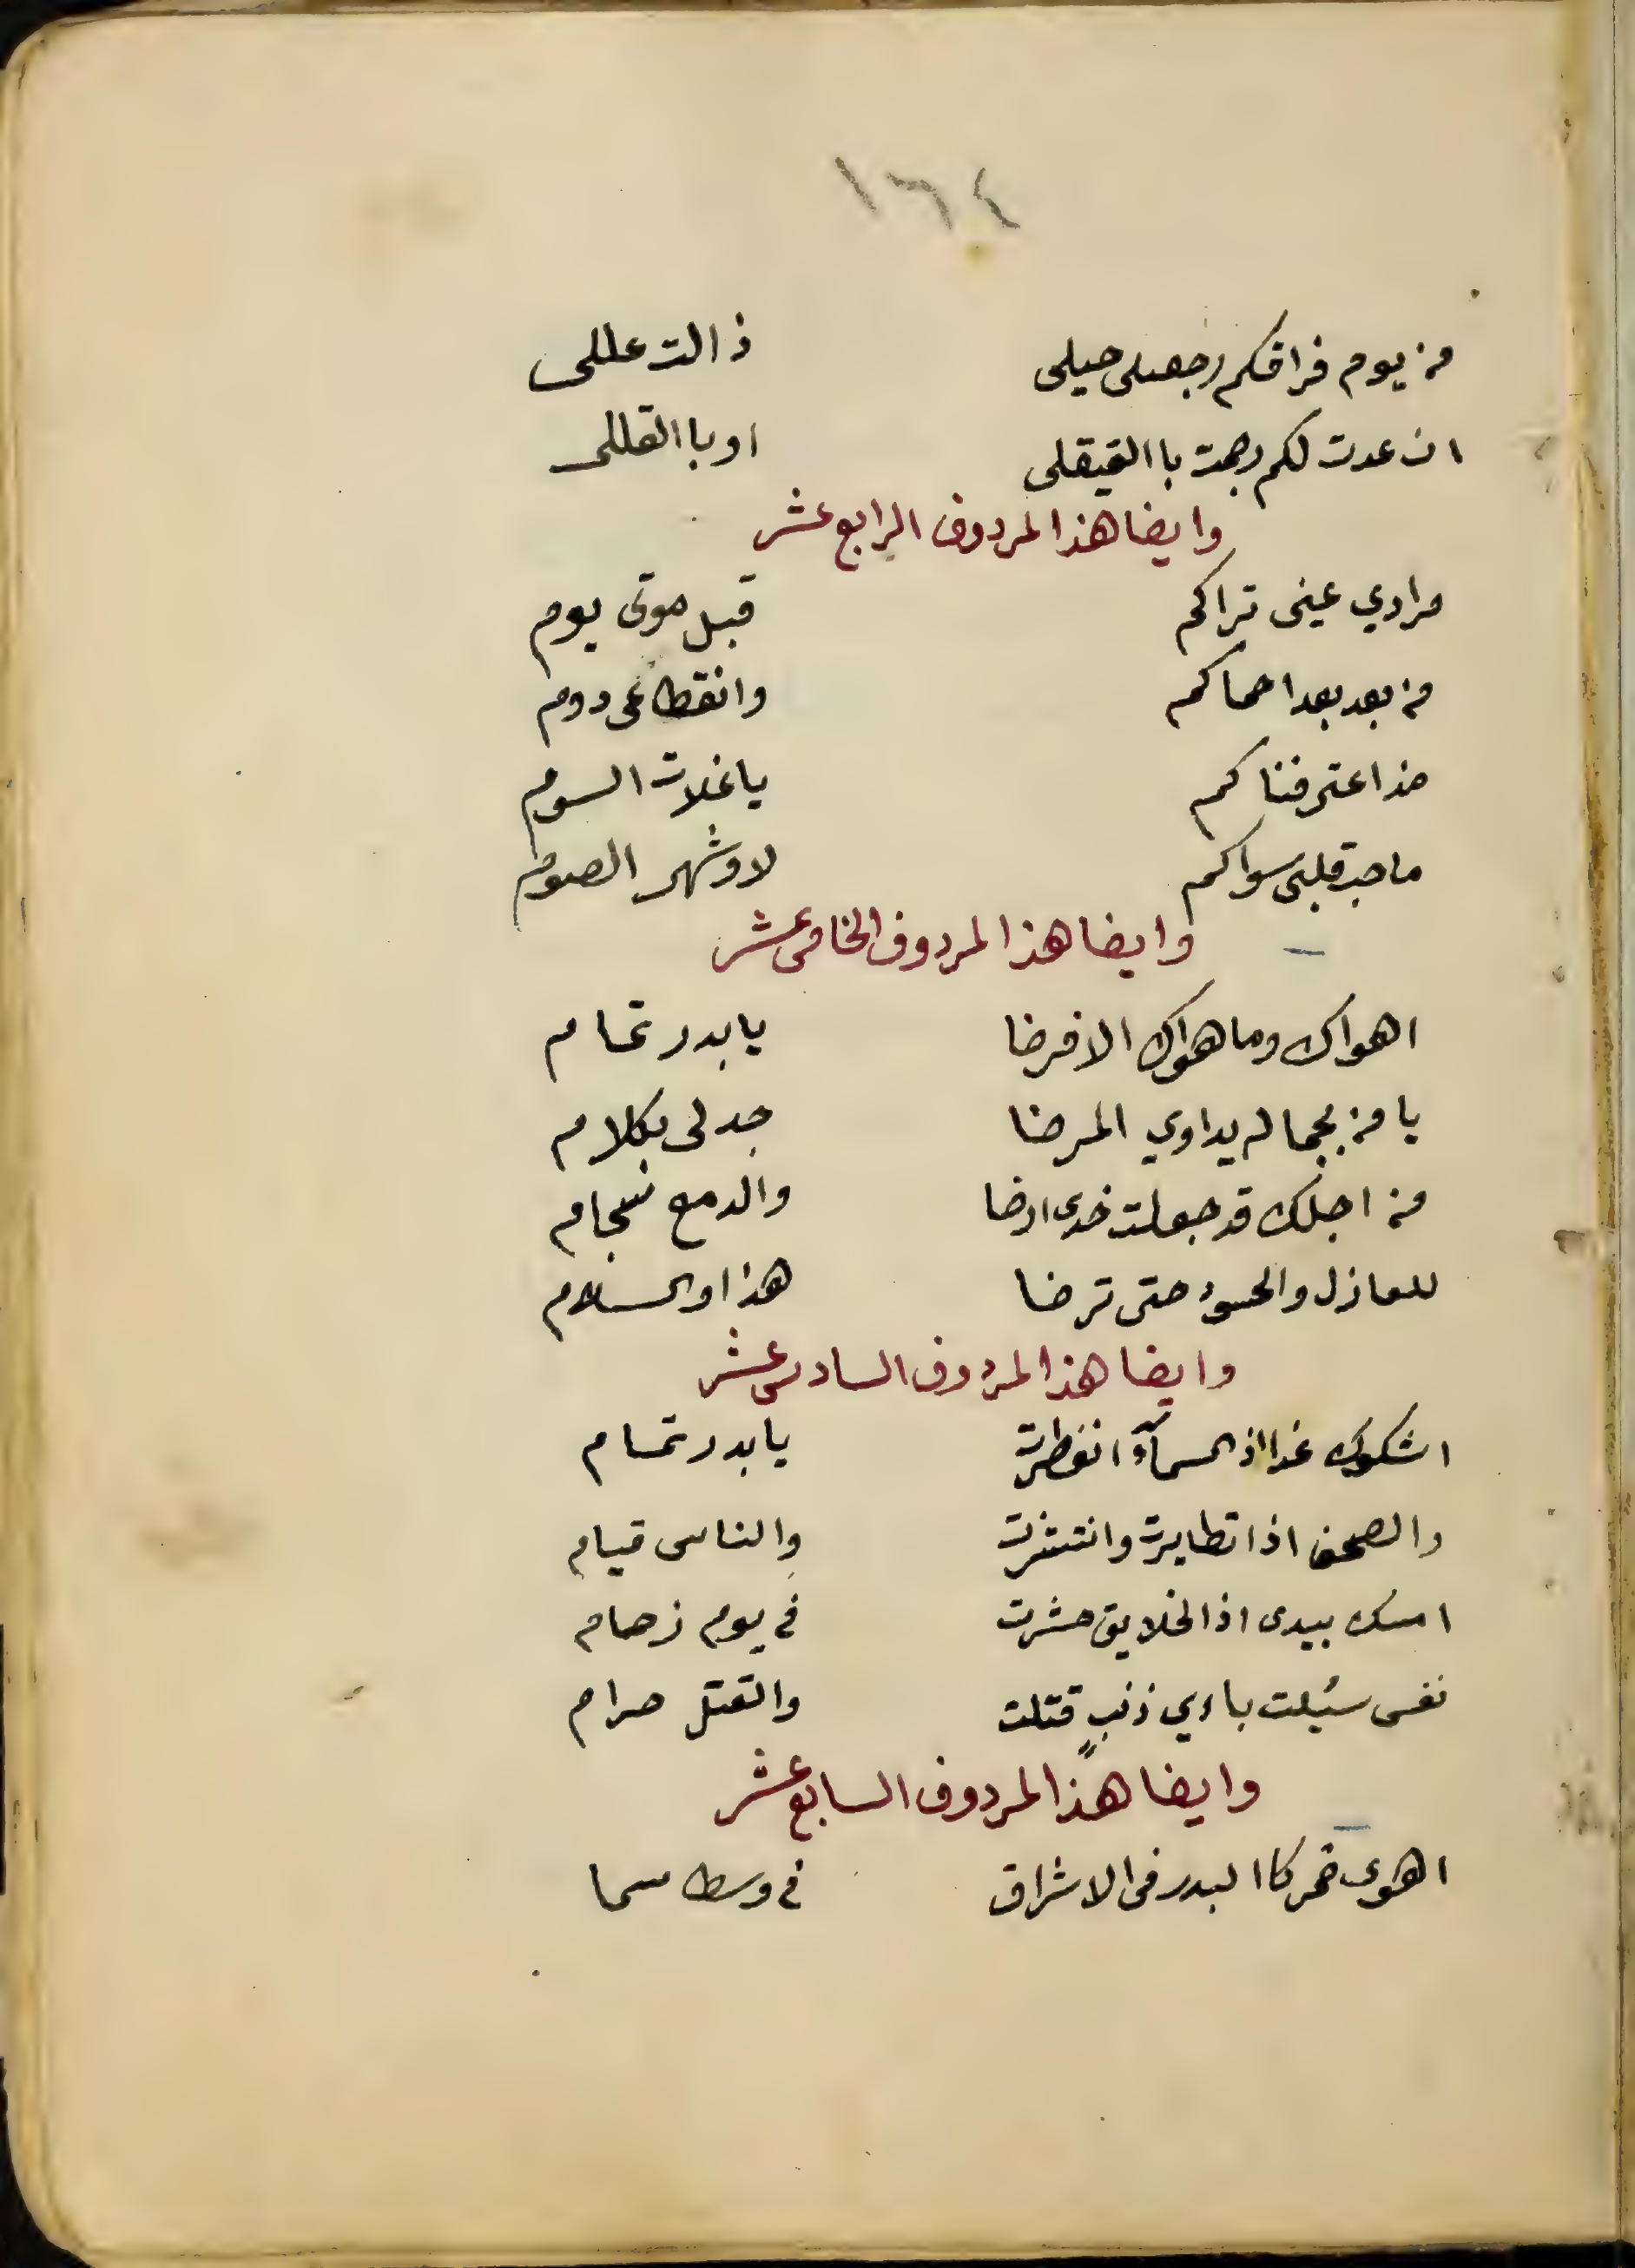 ١٦٤
من يوم فراقكم رجعلى حيلى ذالت عللى
ان عدت لكم رجمت باالقيقلى اوباالقللى
وايضا هذا المردوف الرابع عشر
مرادي عينى تراكم قبل موتى يوم
من بعد بعد احماكم وانقطاعى دوم
مذ اعترفناكم ياغلات السوم
ما حب قلبى سواكم لا وشهر الصوم
وايضا هذا المردوف الخامس عشر
اهواك وما هواك الا فرضا يا بدر تمام
يا من بجماله يداوي المرضا جد لى بكلام
من اجلك قد جعلت خدى ارضا والدمع سجام
للعاذل والحسود حتى ترضا هذا والسلام
وايضا هذا المردوف السادس عشر
اشكوك غدا اذ السمآء انفطرت يا بدر تمام
والصحف اذا تطايرت وانتشرت والناس قيام
امسك بيدى اذ الخلايق حشرت فى يوم زحام
نفس سئيلت باءي ذنبٍ قتلت والقتل حرام
وايضا هذا المردوف السابع عشر
اهوى قمر كاالبدر فى الاشراق فى وسط سما